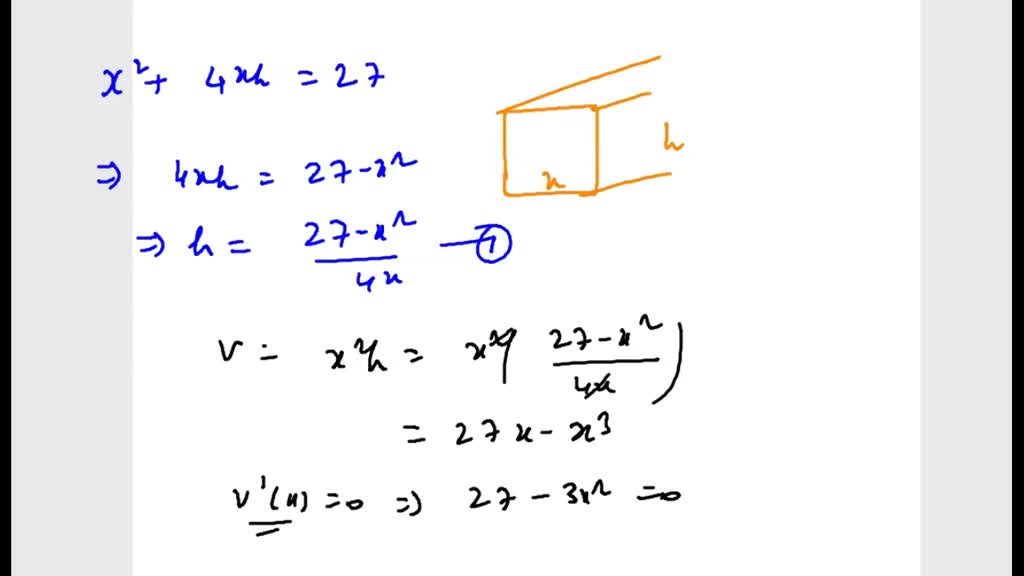 x² + 4xh = 27
⇒ 4xh = 27 - x²
⇒ h = (27 - x²)/4x — ①
h
x
V = x²h = x² ( (27 - x²)/4x )
= 27x - x³
V'(x) = 0 ⇒ 27 - 3x² = 0